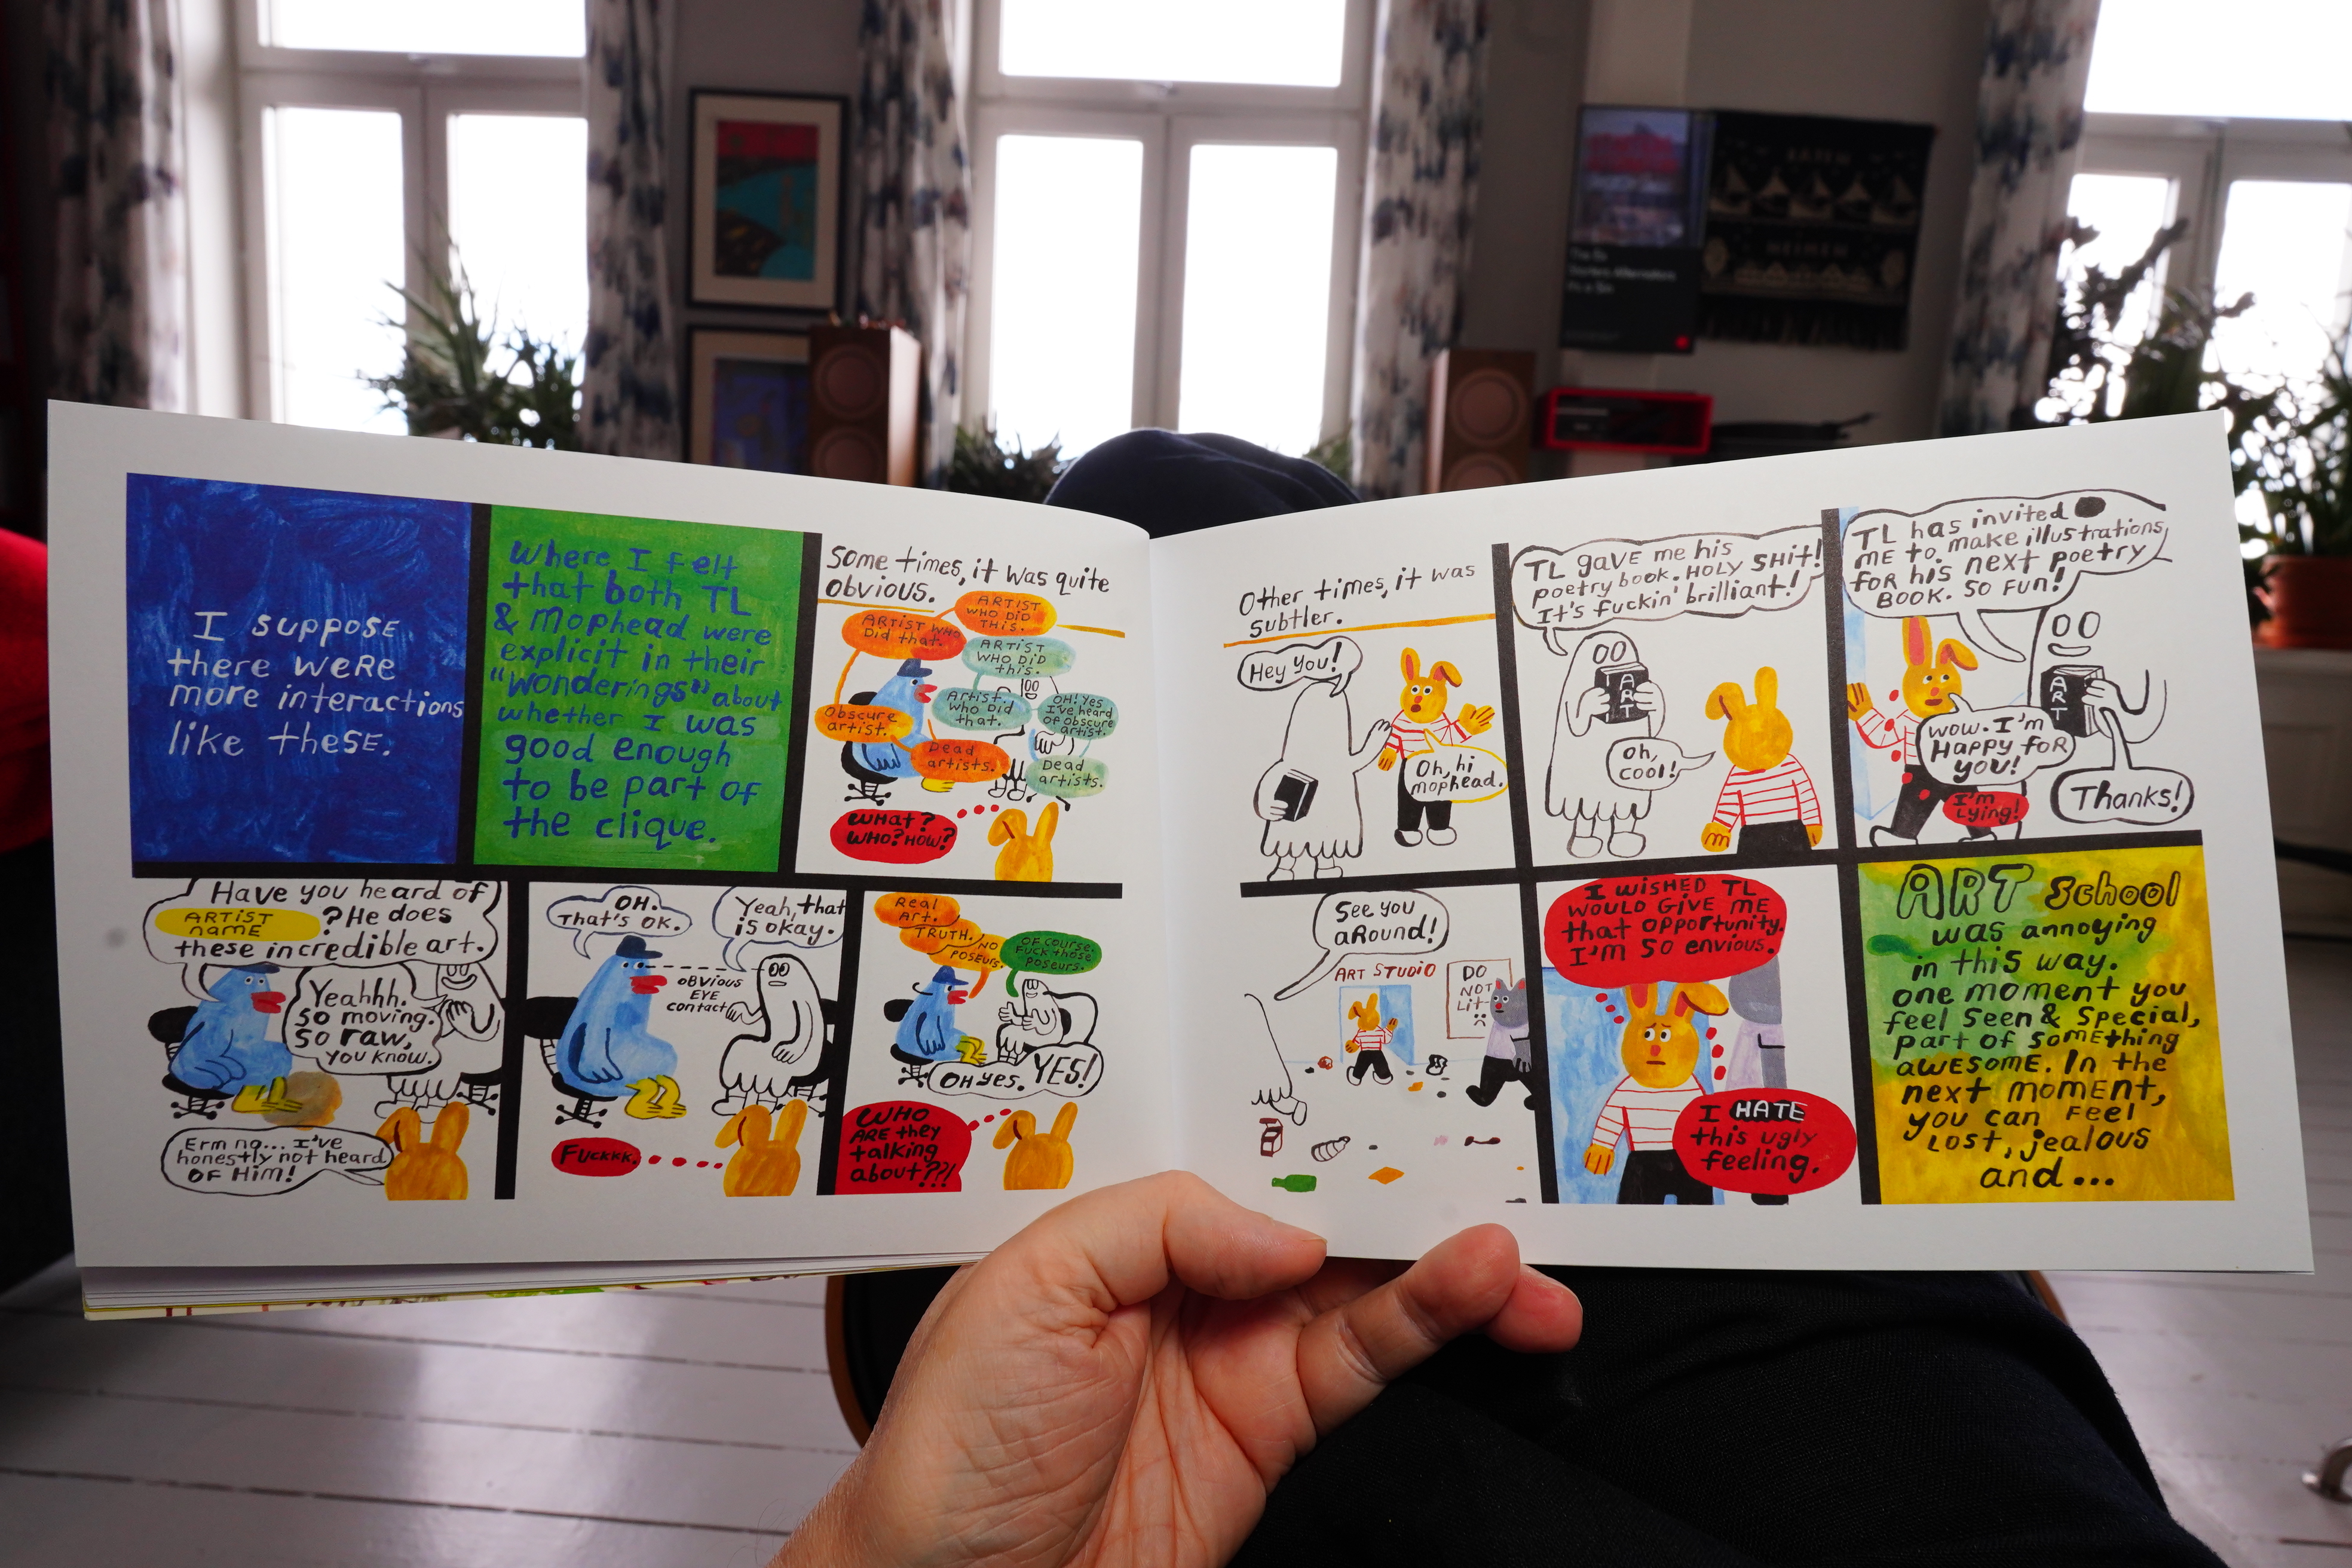 I suppose
there were
more interactions
like these.
Where I felt
that both TL
& Mophead were
explicit in their
"wonderings" about
whether I was
good enough
to be part of
the clique.
Some times, it was quite
obvious.
ARTIST
WHO DID
THIS.
ARTIST WHO
Did that.
ARTIST
WHO DID
this.
Artist
who Did
that.
OH! Yes
I've heard
of obscure
artist.
Obscure
artist.
Dead
artists.
Dead
artists.
WHAT?
WHO? HOW?
Have you heard of
ARTIST
NAME
? He does
these incredible art.
Yeahhh.
so moving.
so raw,
you know.
Erm no... I've
honestly not heard
OF HIM!
OH.
That's OK.
Yeah, that
is okay.
OBVIOUS
EYE
contact
Fuckkk.
Real
Art.
TRUTH.
NO
POSEURS.
OF course.
Fuck those
poseurs.
OH yes. YES!
WHO
ARE they
talking
about??!
Other times, it was
subtler.
Hey you!
Oh, hi
mophead.
TL gave me his
poetry book. HOLY SHIT!
It's fuckin' brilliant!
ART
Oh,
cool!
TL has invited
ME to make illustrations
for his next poetry
BOOK. SO FUN!
ART
wow. I'm
Happy for
you!
I'm
Lying!
Thanks!
See you
around!
ART STUDIO
DO
NOT
Lit
I WISHED TL
WOULD GIVE ME
that opportunity.
I'm so envious.
I HATE
this ugly
feeling.
ART School
was annoying
in this way.
one moment you
feel seen & special,
part of something
awesome. In the
next moment,
you can feel
lost, jealous
and...